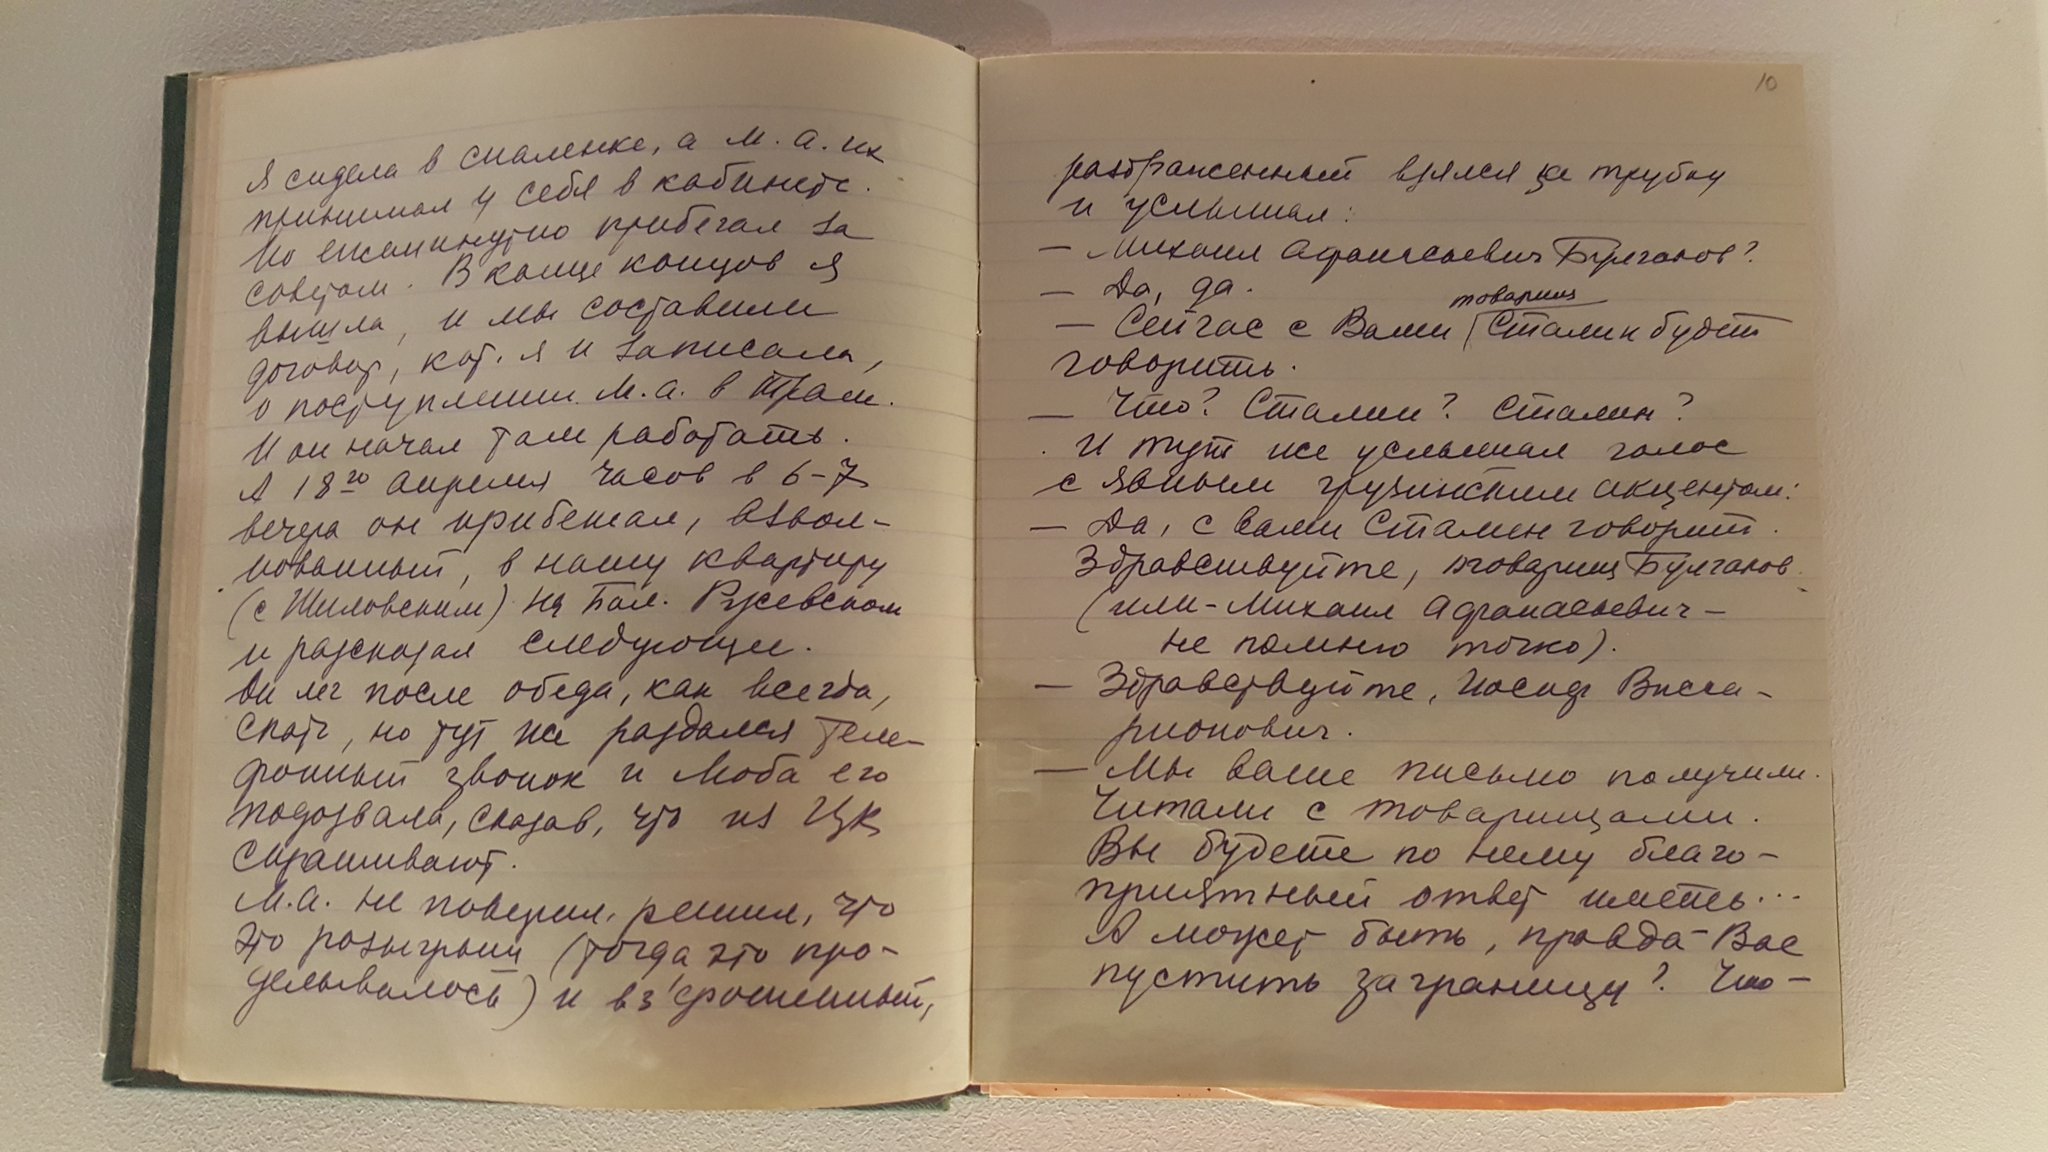 Я сидела в спаленке, а М.А. их
принимал у себя в кабинете.
Но ежеминутно прибегал за
советом. В конце концов я
вышла, и мы составили
договор, кот. я и записала,
о поступлении М.А. в Трам.
И он начал там работать.
А 18го апреля часов в 6-7
вечера он прибежал, взвол-
нованный, в нашу квартиру
(с Шиловским) на Бол. Ржевском
и рассказал следующее.
Он лег после обеда, как всегда,
спать, но тут же раздался теле-
фонный звонок и Люба его
подозвала, сказав, что из ЦК
спрашивают.
М.А. не поверил, решил, что
это розыгрыш (тогда это про-
делывалось) и взъерошенный,
10
раздраженный взялся за трубку
и услышал:
— Михаил Афанасьевич Булгаков?
— Да, да.
товарищ
— Сейчас с Вами Сталин будет
говорить.
— Что? Сталин? Сталин?
И тут же услышал голос
с явным грузинским акцентом:
— Да, с вами Сталин говорит.
Здравствуйте, товарищ Булгаков
(или - Михаил Афанасьевич -
не помню точно).
— Здравствуйте, Иосиф Висса-
рионович.
— Мы ваше письмо получили.
Читали с товарищами.
Вы будете по нему благо-
приятный ответ иметь...
А может быть, правда - Вас
пустить заграницу? Что -